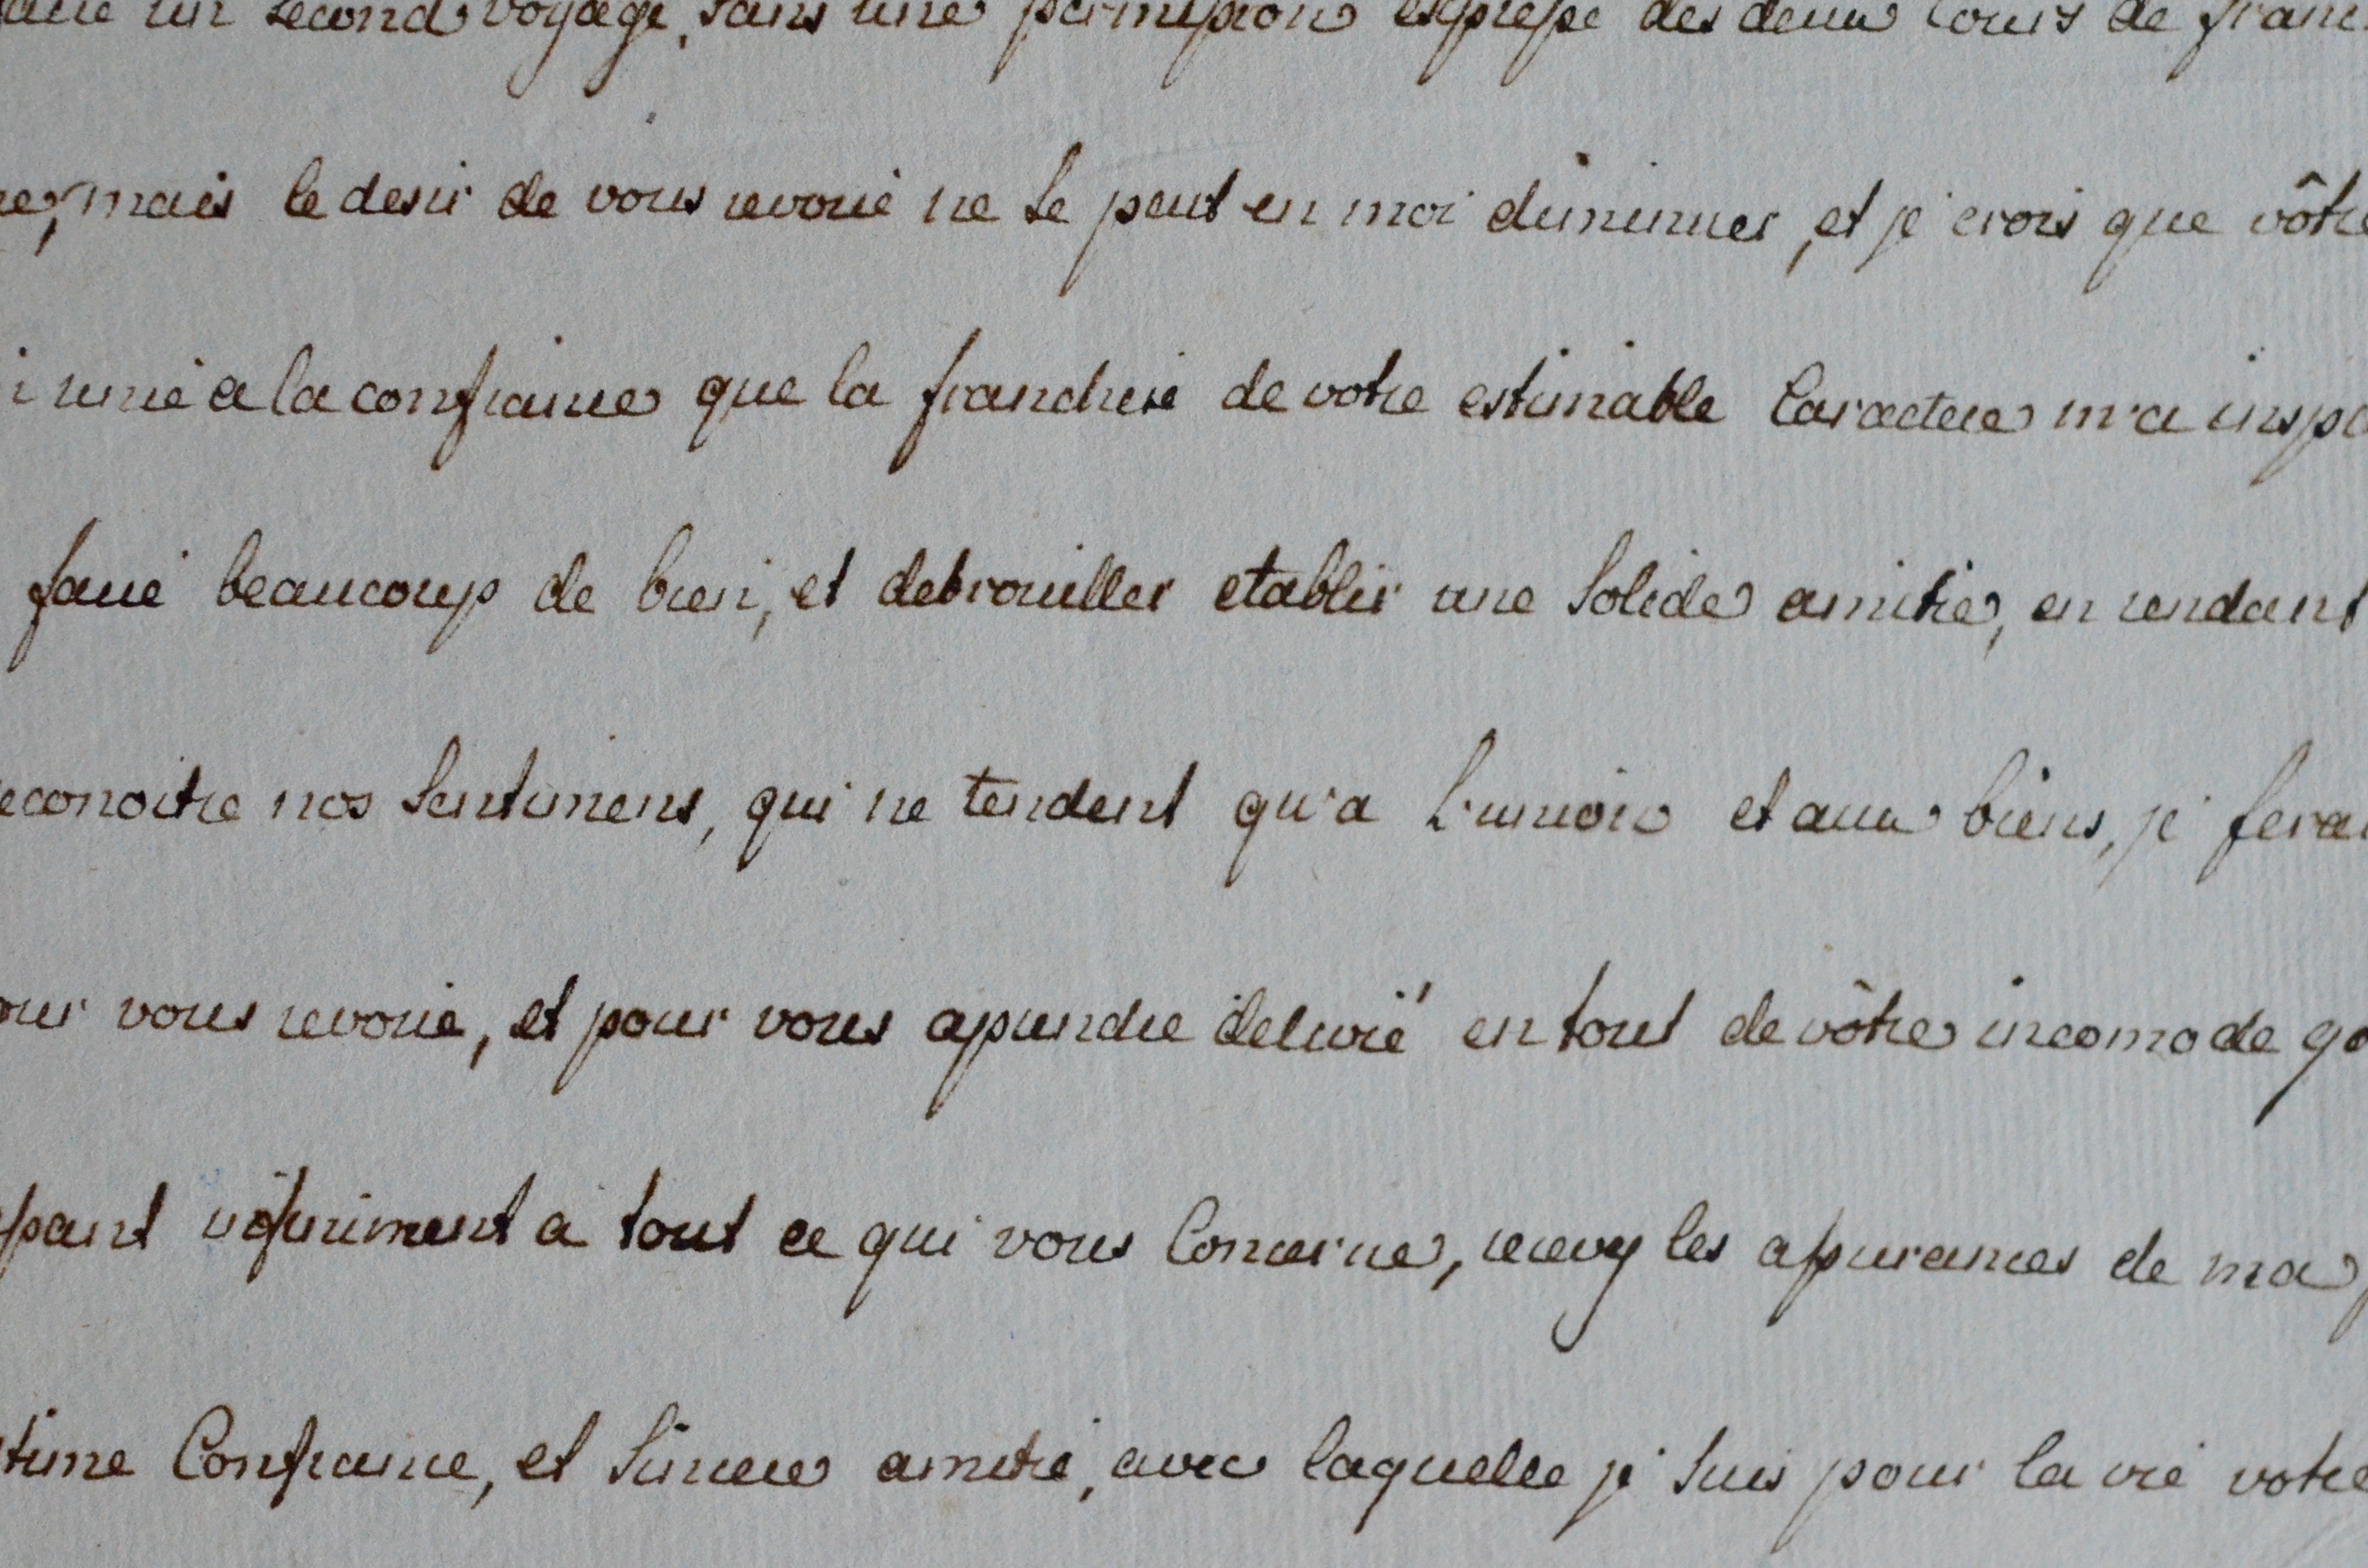 faire un second voyage, sans une permission expresse des deux Cours de franc
mais le desir de vous revoir ne se peut en moi diminuer, et je crois que vôtre
unie a la confiance que la franchise de votre estimable Caractere m'a inspi
faire beaucoup de bien, et debrouiller etablir une Solide amitie, en rendant
econoitre nos Sentimens, qui ne tendent qu'a L'union et aux biens, je ferai
our vous revoir, et pour vous aprendre delivré en tout de vôtre incomode go
ssant infiniment a tout ce qui vous Concerne, recevez les assurances de ma
time Confiance, et Sincere amitié, avec laquelle je Suis pour la vie votre